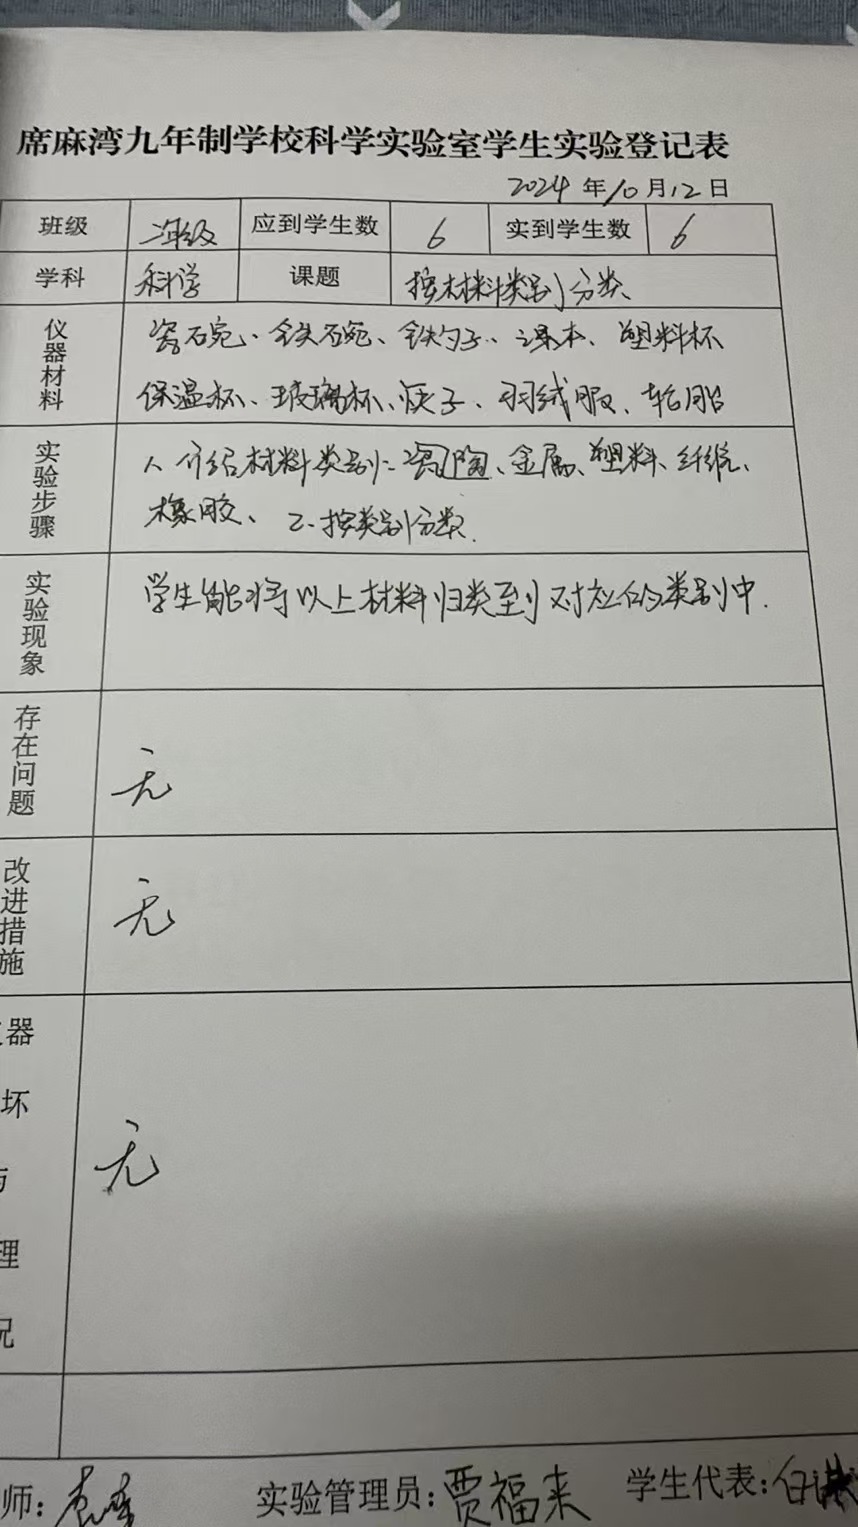 席麻湾九年制学校科学实验室学生实验登记表
2024 年 10 月 12 日
班级 二年级 应到学生数 6 实到学生数 6
学科 科学 课题 按材料类别分类
仪器材料
瓷碗、铁碗、铁勺子、课本、塑料杯
保温杯、玻璃杯、筷子、羽绒服、轮胎
实验步骤
1、介绍材料类别：陶、金属、塑料、纤维、
橡胶、 2、按类别分类.
实验现象
学生能将以上材料归类到对应的类别中.
存在问题
无
改进措施
无
器
坏
理
况
无
师： 实验管理员：贾福来 学生代表：白